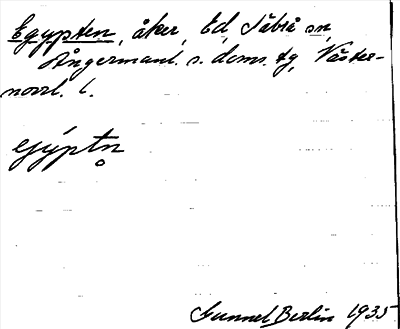 Egypten, åker, Ed, Såbrå sn,
Ångermanl. s. doms. tg, Väster-
norrl. l.
ejýptn̥
Gunnel Berlin 1935